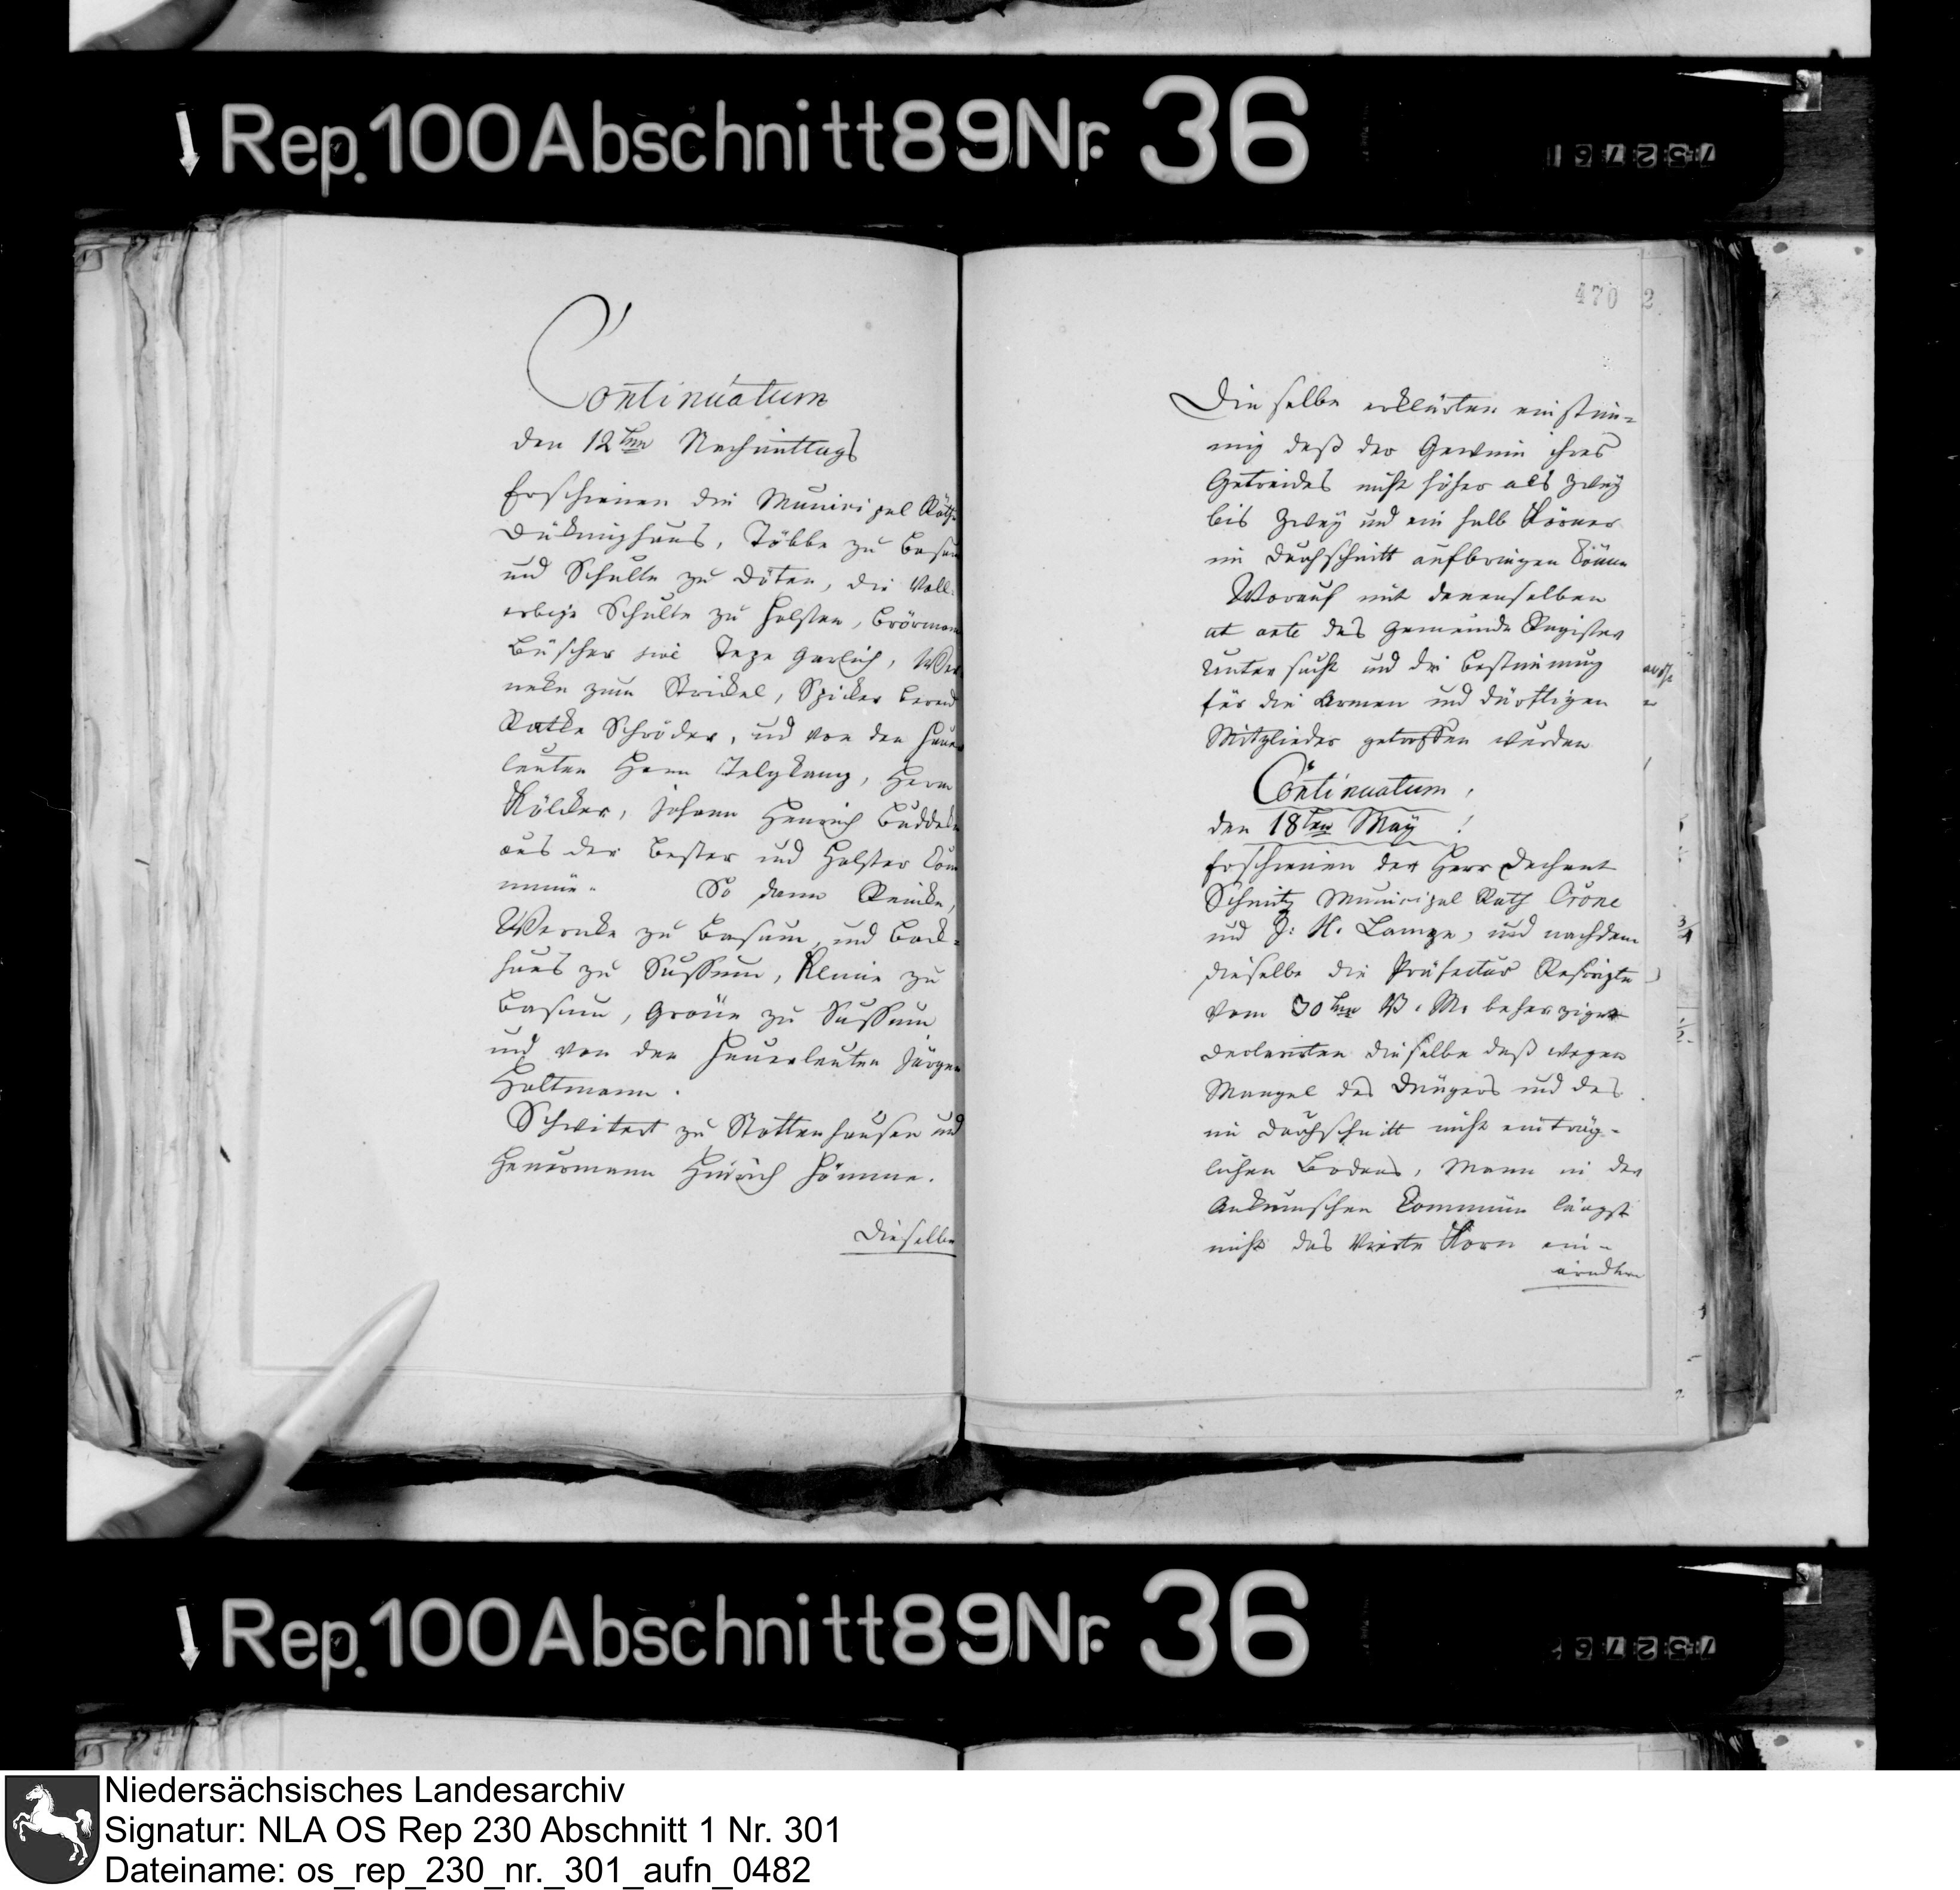 Rep. 100 Abschnitt 89 Nr. 36
470 2
Continuatum
den 12ten Nachmittags
Erschienen die Municipal Räthe
Dükinghaus, Többe zu Besten
und Schulte zu Döten, die Voll-
erbige Schulte zu Holsten, Brörmann
Büscher sive Gerlich, Wer
neke zum Strickel, Spieker Berend
Ratke Schröder, und von den Heuer
leuten Herm Telgkamp, Herm
Kölcker, Johann Henrich Buddeke
aus der Bester und Holster Com
mune. So dann Reinke,
Wernke zu Basum, und Back-
haus zu Sussum, Kleine zu
Basum, Gröne zu Sussum
und von den Heuerleuten Jürgen
Holtmann.
Schwietert zu Stottenhausen und
Heuermann Hinrich Hömme.
Dieselbe
Die selbe erklärten einstim-
mig daß der Gewinn ihres
Getreides nicht höher als zwey
bis zwey und ein halb Körner
im Durchschnitt aufbringen könne
Worauf mit denenselben
ut ante das Gemeinde Register
untersucht und die Bestimmung
für die Armen und dürftigen
Mitglieder getroffen wurden
Continuatum,
den 18ten May!
Erschienen der Herr Dechant
Schmitz Municipal Rath Crone
und J: H. Lampe, und nachdem
dieselbe die Präfectur Rescripte
vom 30ten V. M. beherziget
declarirten dieselbe daß wegen
Mangel des Düngers und des
im Durchschnitt nicht einträg-
lichen Bodens, Mann in der
Ankumschen Commune längst
nicht das Vierte Korn ein-
ärndten
Rep. 100 Abschnitt 89 Nr. 36
Niedersächsisches Landesarchiv
Signatur: NLA OS Rep 230 Abschnitt 1 Nr. 301
Dateiname: os_rep_230_nr._301_aufn_0482